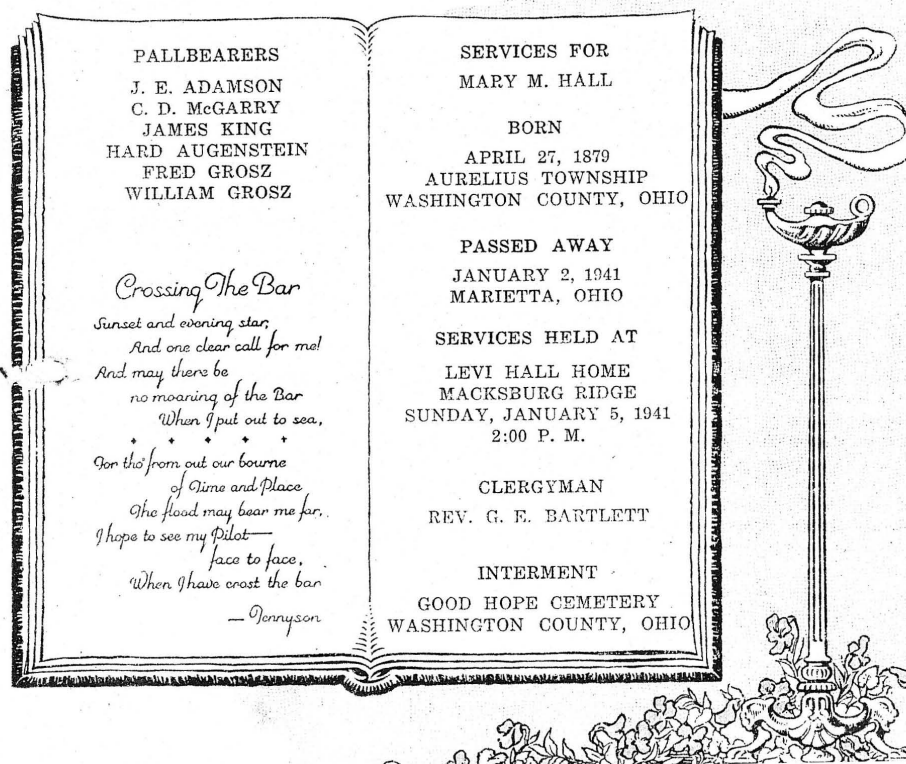 PALLBEARERS
J. E. ADAMSON
C. D. McGARRY
JAMES KING
HARD AUGENSTEIN
FRED GROSZ
WILLIAM GROSZ
Crossing The Bar
Sunset and evening star,
And one clear call for me!
And may there be
no moaning of the Bar
When I put out to sea,
For tho' from out our bourne
of Time and Place
The flood may bear me far,
I hope to see my Pilot—
face to face,
When I have crost the bar
— Tennyson
SERVICES FOR
MARY M. HALL
BORN
APRIL 27, 1879
AURELIUS TOWNSHIP
WASHINGTON COUNTY, OHIO
PASSED AWAY
JANUARY 2, 1941
MARIETTA, OHIO
SERVICES HELD AT
LEVI HALL HOME
MACKSBURG RIDGE
SUNDAY, JANUARY 5, 1941
2:00 P. M.
CLERGYMAN
REV. G. E. BARTLETT
INTERMENT
GOOD HOPE CEMETERY
WASHINGTON COUNTY, OHIO